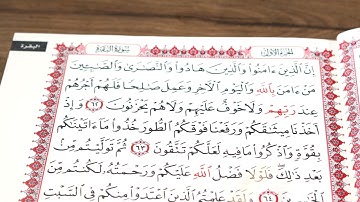 البقرة
سورة البقرة
الجزء الأول
إِنَّ الَّذِينَ ءَامَنُوا وَالَّذِينَ هَادُوا وَالنَّصَٰرَىٰ وَالصَّٰبِـِٔينَ
مَنْ ءَامَنَ بِاللَّهِ وَالْيَوْمِ الْءَاخِرِ وَعَمِلَ صَٰلِحًا فَلَهُمْ أَجْرُهُمْ
عِندَ رَبِّهِمْ وَلَا خَوْفٌ عَلَيْهِمْ وَلَا هُمْ يَحْزَنُونَ ٦٢ وَإِذْ
أَخَذْنَا مِيثَٰقَكُمْ وَرَفَعْنَا فَوْقَكُمُ الطُّورَ خُذُوا مَا ءَاتَيْنَٰكُم
بِقُوَّةٍ وَاذْكُرُوا مَا فِيهِ لَعَلَّكُمْ تَتَّقُونَ ٦٣ ثُمَّ تَوَلَّيْتُم مِّن
بَعْدِ ذَٰلِكَ فَلَوْلَا فَضْلُ اللَّهِ عَلَيْكُمْ وَرَحْمَتُهُ لَكُنتُم مِّنَ
الْخَٰسِرِينَ ٦٤ وَلَقَدْ عَلِمْتُمُ الَّذِينَ اعْتَدَوْا مِنكُمْ فِي السَّبْتِ